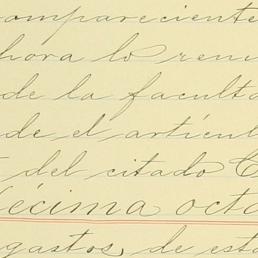 compareciente
ahora lo renu
de la faculta
de el artícul
del citado C
décima octa
gastos, de esta